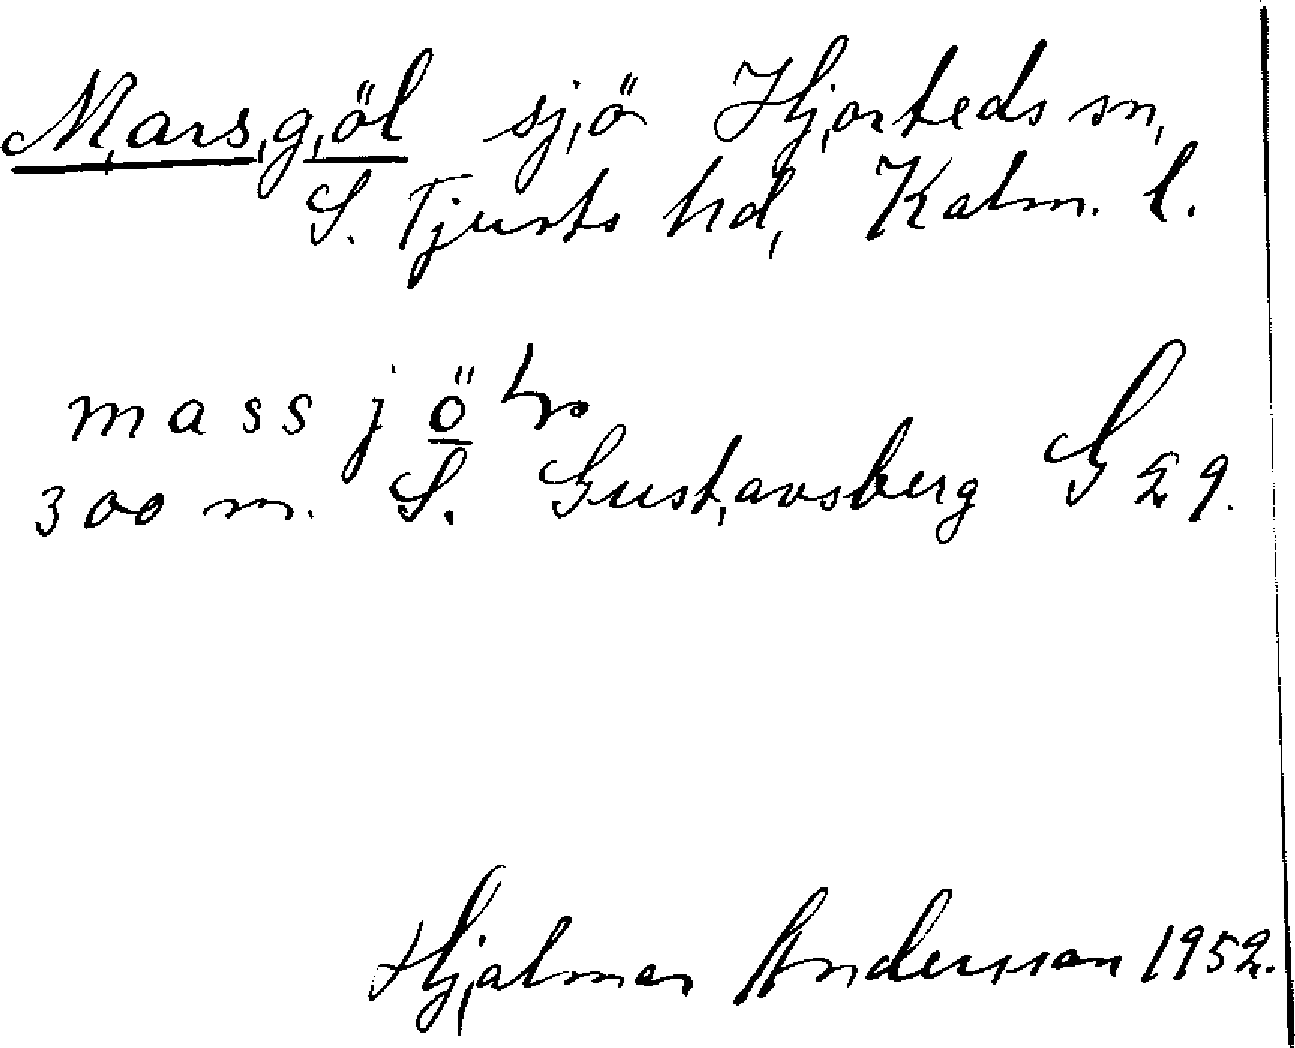 Marsgöl sjö Hjorteds sn,
S. Tjusts hd, Kalm. l.
massjö
300 m. S. Gustavsberg G 29.
Hjalmar Andersson 1952.